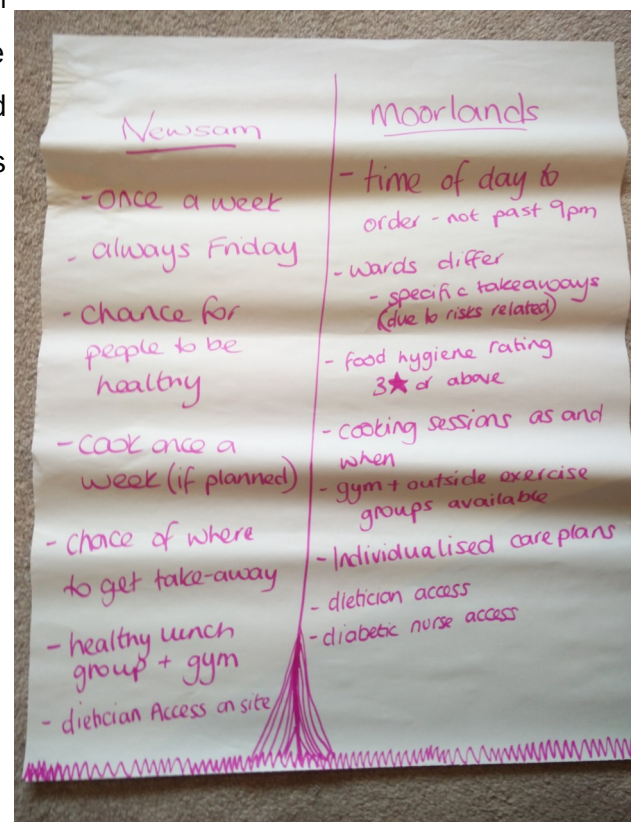 Newsam
- once a week
- always Friday
- chance for
people to be
healthy
- cook once a
week (if planned)
- choice of where
to get take-away
- healthy lunch
group + gym
- dietician Access on site
Moorlands
- time of day to
order - not past 9pm
- wards differ
- specific takeaways
(due to risks related)
- food hygiene rating
3★ or above
- cooking sessions as and
when
- gym + outside exercise
groups available
- Individualised care plans
- dietician access
- diabetic nurse access